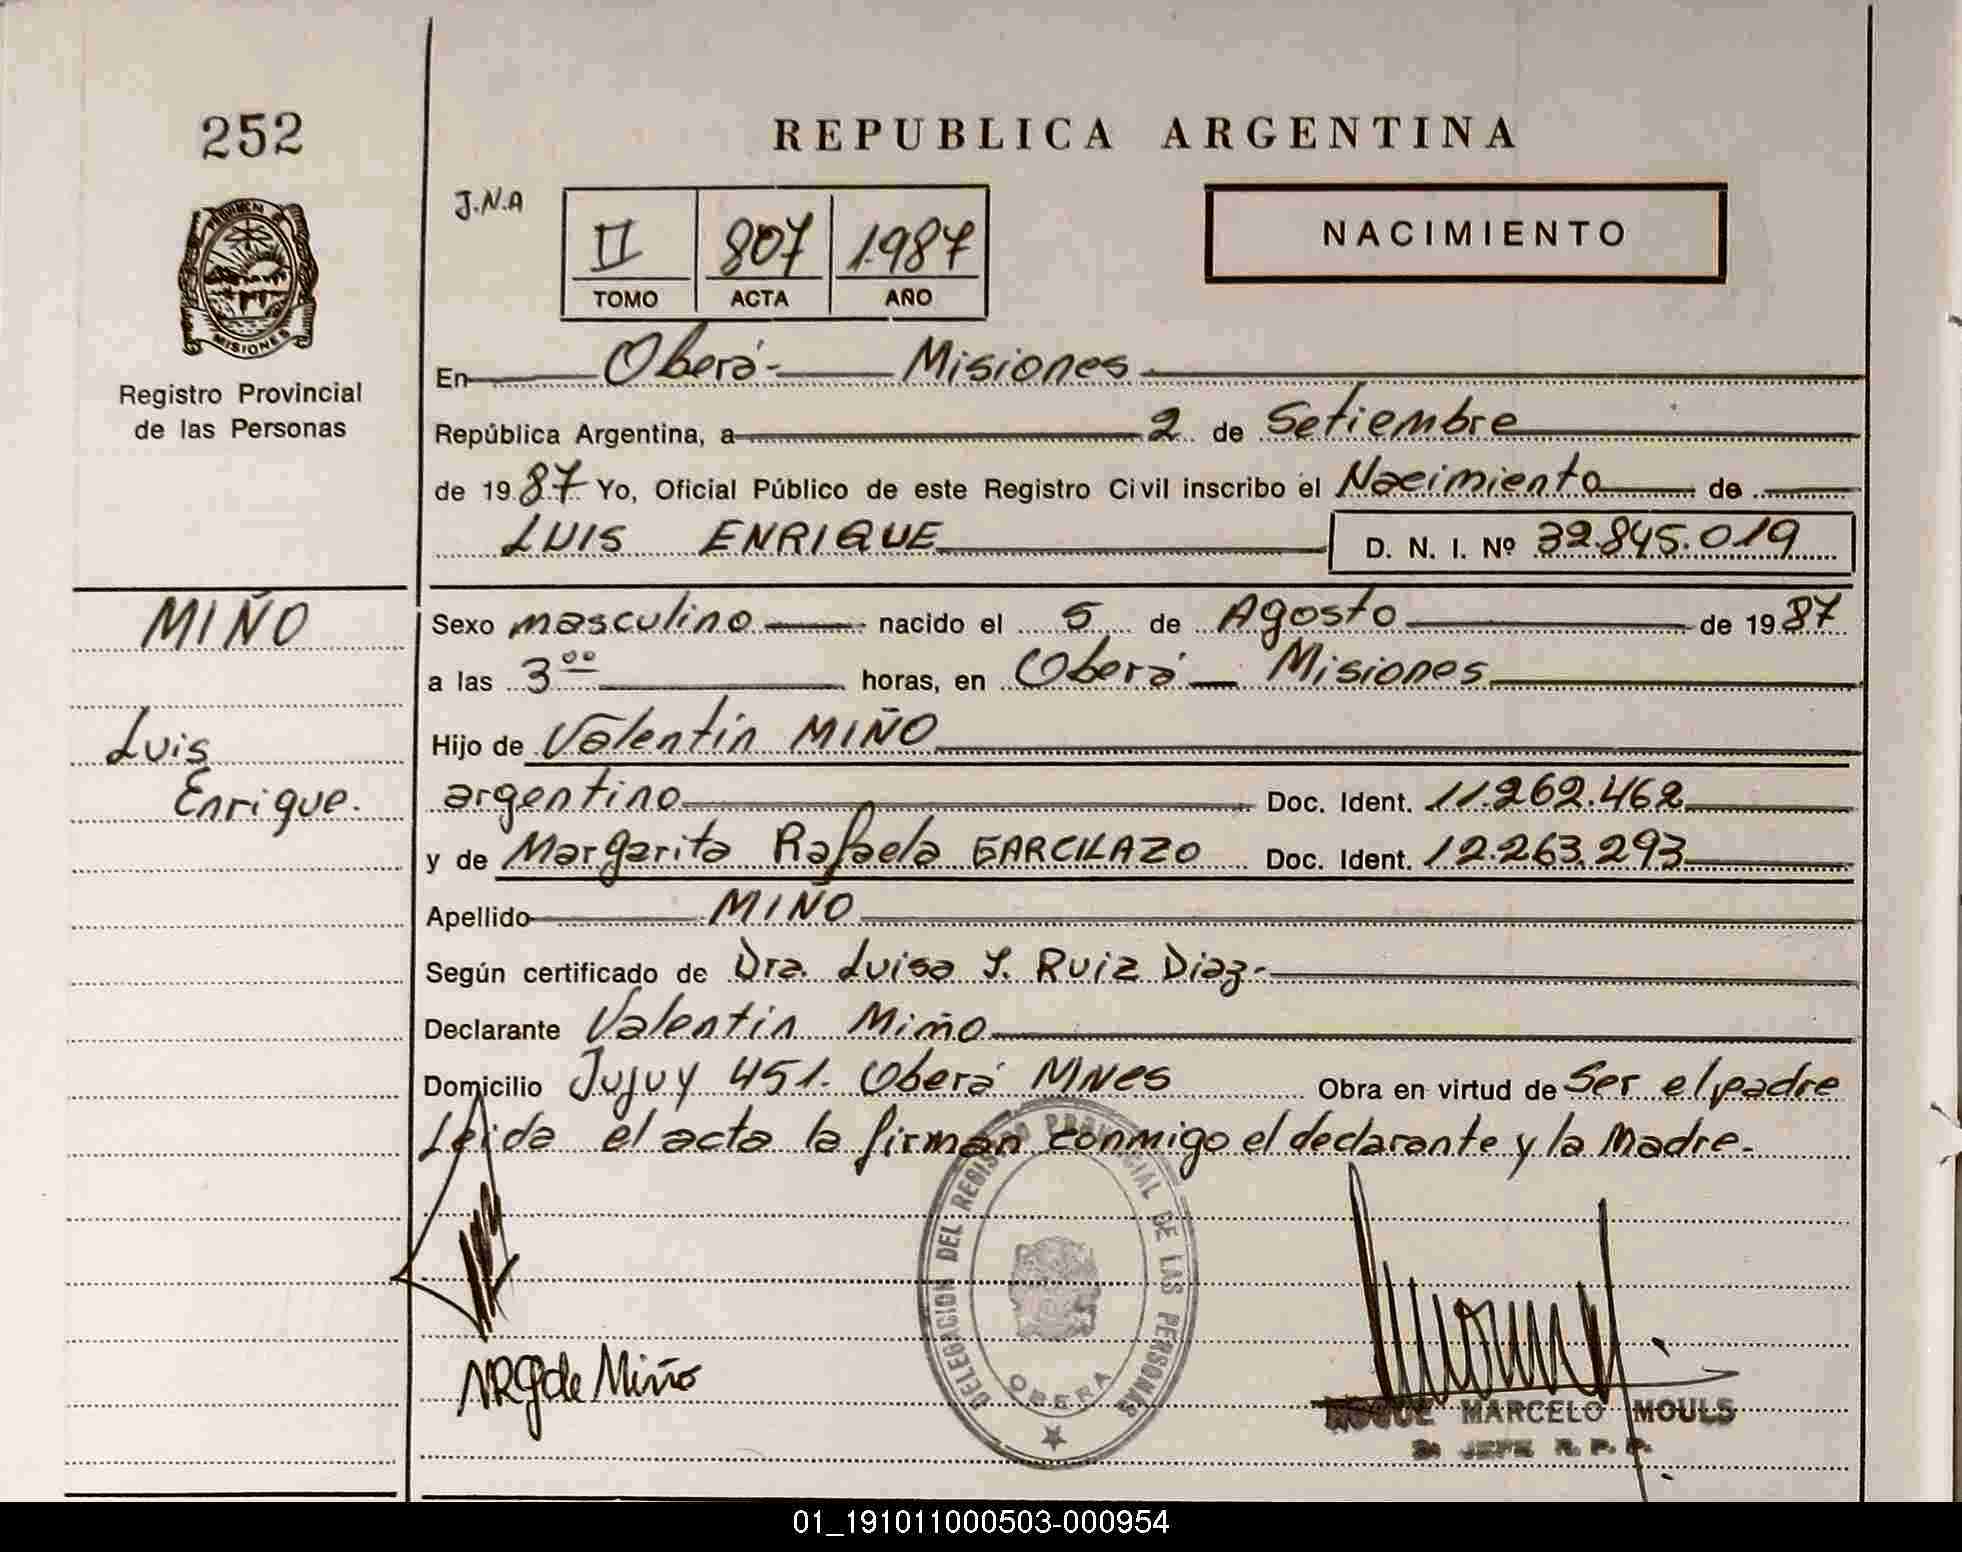 252
REPUBLICA ARGENTINA
J.N.A
II 807 1.987
TOMO ACTA AÑO
NACIMIENTO
MISIONES
Registro Provincial
de las Personas
En Oberá- Misiones
República Argentina, a 2 de Setiembre
de 19 87 Yo, Oficial Público de este Registro Civil inscribo el Nacimiento de
LUIS ENRIQUE D. N. I. Nº 32.845.019
MIÑO
Luis
Enrique.
Sexo masculino nacido el 5 de Agosto de 19 87
a las 3 00 horas, en Oberá Misiones
Hijo de Valentín MIÑO
argentino Doc. Ident. 11.262.462
y de Margarita Rafaela GARCILAZO Doc. Ident. 12.263.293
Apellido MIÑO
Según certificado de Dra. Luisa Y. Ruiz Diaz-
Declarante Valentín Miño
Domicilio Jujuy 451. Oberá MNes Obra en virtud de Ser el padre
Leida el acta la firman conmigo el declarante y la Madre-
DELEGACION DEL REGISTRO PROVINCIAL DE LAS PERSONAS
OBERA
MRG de Miño
ROQUE MARCELO MOULS
JEFE R. P. P.
01_191011000503-000954